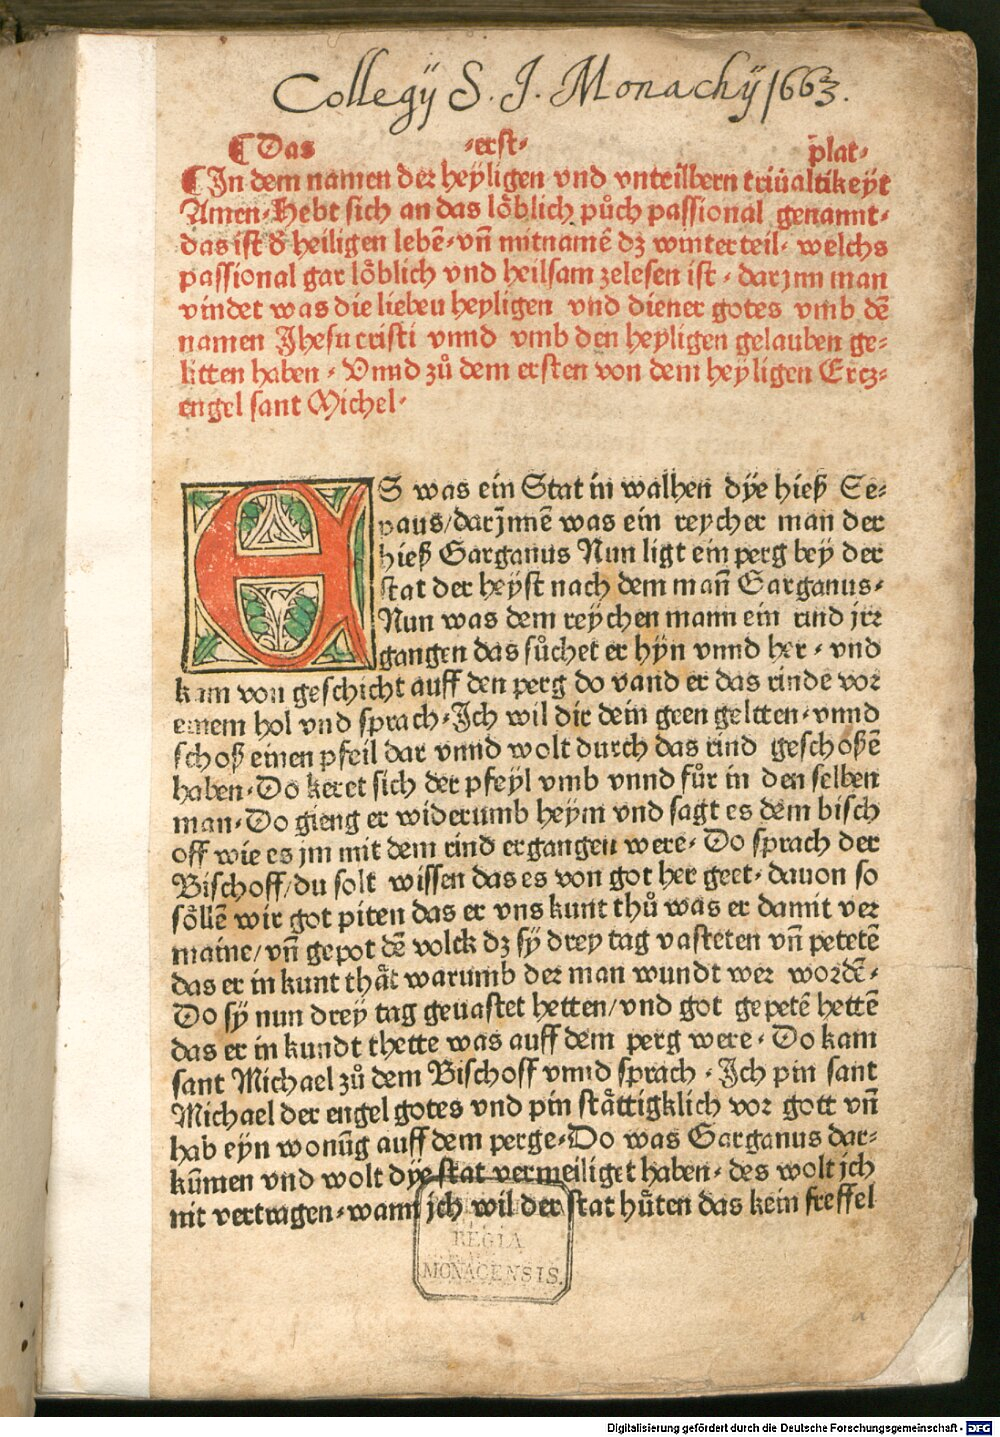 Collegÿ S. J. Monachÿ 1663.
¶ Das ·erst· plat·
¶ In dem namen der heyligen vnd vnteilbern triualtikeyt
Amen· Hebt sich an das loͤblich půch passional genannt·
das ist d̕ heiligen lebē· vn̄ mitnamē dz winterteil· welchs
passional gar loͤblich vnd heilsam zelesen ist · darjnn man
vindet was die lieben heyligen vnd diener gotes vmb dē
namen Jhesu cristi vnnd vmb den heyligen gelauben ge⸗
litten haben · Vnnd zů dem ersten von dem heyligen Ercz⸗
engel sant Michel·
ES was ein Stat in walhen dye hieß Se⸗
paus/ darjnnē was ein reycher man der
hieß Garganus Nun ligt ein perg bey der
stat der heyst nach dem man̄ Garganus·
Nun was dem reychen mann ein rind jrr
gangen das sůchet er hyn vnnd her · vnd
kam von geschicht auff den perg do vand er das rinde vor
einem hol vnd sprach· Ich wil dir dein geen geltten· vnnd
schoß einen pfeil dar vnnd wolt durch das rind geschoßē
haben· Do keret sich der pfeyl vmb vnnd fůr in den selben
man· Do gieng er widerumb heym vnd sagt es dem bisch
off wie es jm mit dem rind ergangen were· Do sprach der
Bischoff/ du solt wissen das es von got her geet· dauon so
soͤllē wir got piten das er vns kunt thů was er damit ver
maine/ vn̄ gepot dē volck dz sy drey tag vasteten vn̄ petetē
das er in kunt thaͤt warumb der man wundt wer wordē·
Do sy nun drey tag geuastet hetten/ vnd got gepetē hettē
das er in kundt thette was auff dem perg were· Do kam
sant Michael zů dem Bischoff vnnd sprach · Ich pin sant
Michael der engel gotes vnd pin staͤttigklich vor gott vn̄
hab eyn wonūg auff dem perge· Do was Garganus dar⸗
kūmen vnd wolt dye stat vermeiliget haben· des wolt jch
nit vertragen· wann jch wil der stat huͤten das kein freffel
REGIA
MONACENSIS.
Digitalisierung gefördert durch die Deutsche Forschungsgemeinschaft - DFG